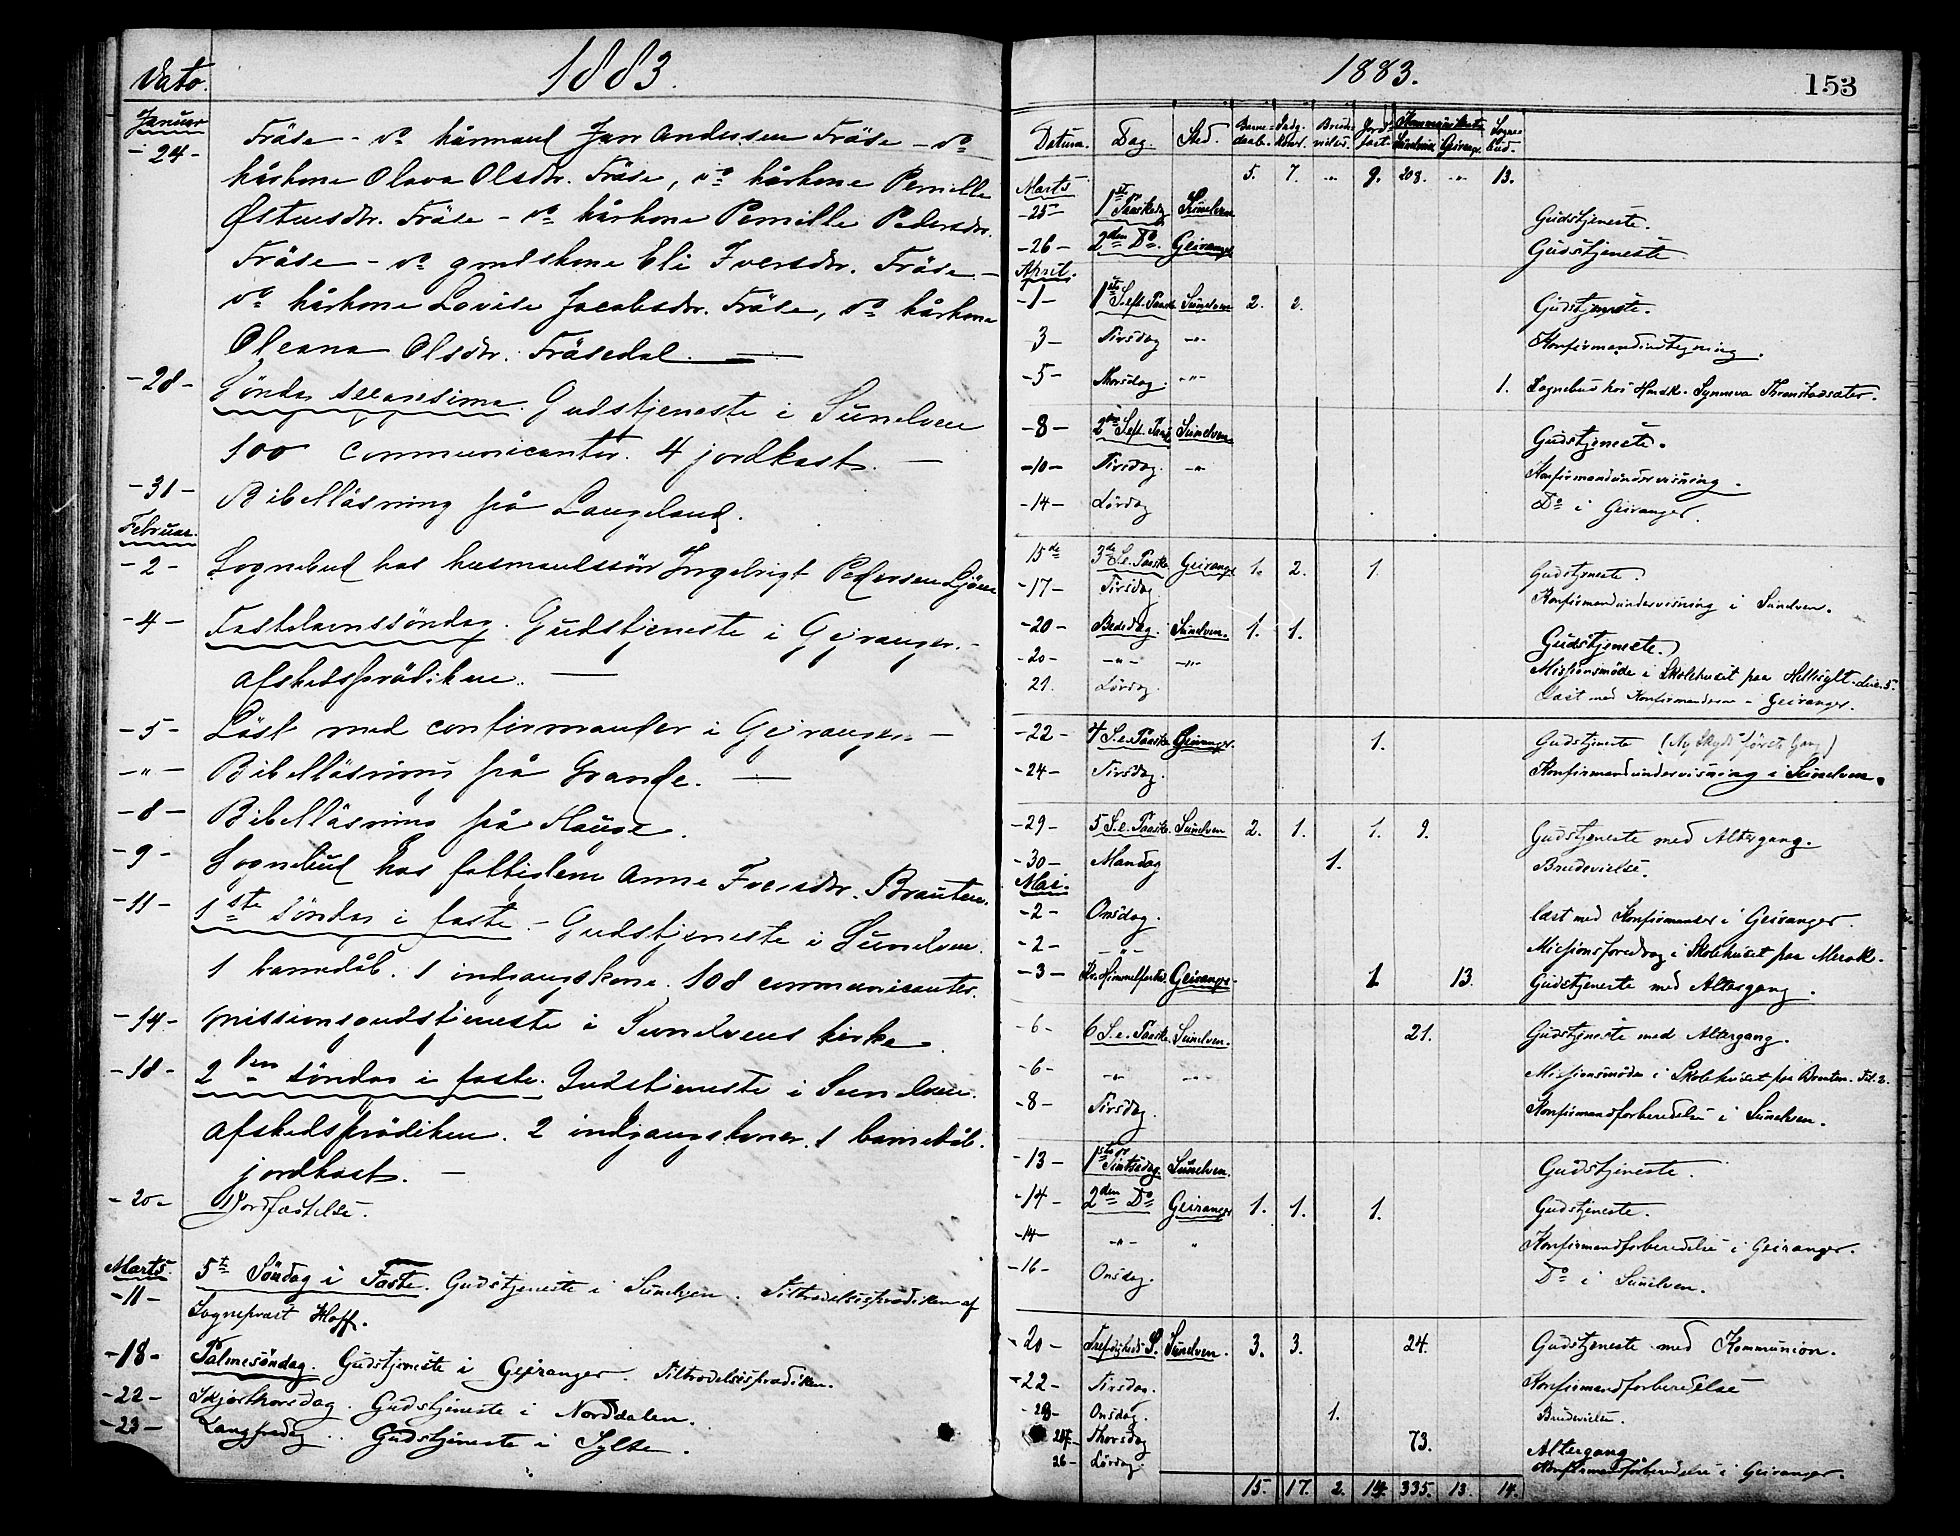 1883.
Dato.
Januar
-24- Fräse - do kårmand Jan Andersen Fräse - do
kårkone Olava Olsdtr. Fräse, do kårkone Pernille
Østensdtr. Fräse - do kårkone Pernille Pedersdtr.
Fräse - do grmdskone Eli Iversdtr. Fräse -
do kårkone Lovise Jacobsdtr. Fräse, do kårkone
Oleana Olsdtr. Fräsedal. —
-28- Søndag sexagesima. Gudstjeneste i Sunelven
100 communicanter. 4 jordkast. —
-31- Bibelläsning på Langeland.
Februar.
-2- Sognebud hos husmandssøn Ingebrigt Pedersen Ljøen
-4- Fastelavnssöndag. Gudstjeneste i Gejranger. -
afskedsprädiken. —
-5- Läst med confirmander i Gejranger. —
-"- Bibelläsning på Grande. —
-8- Bibelläsning på Hauge.
-9- Sognebud hos fattiglem Anne Iversdtr. Brauten.
-11- 1ste söndag i faste. - Gudstjeneste i Sunelven.
1 barnedåb. 1 indgangskone. 108 communicanter.
-14- Missionsgudstjeneste i Sunelvens kirke
-18- 2den söndag i faste. Gudstjeneste i Sunelven.
afskedsprädiken. 2 indgangskoner. 1 barnedåb.
jordkast. —
-20- Jordfæstelse.
Marts.
-11- 5te Söndag i Faste. Gudstjeneste i Sunelven. Tiltrædelsesprædiken af
Sogneprest Hoff.
-18- Palmesöndag. Gudstjeneste i Geiranger. Tiltrædelsesprædiken.
-22- Skjærthorsdag. Gudstjeneste i Norddalen.
-23- Langfredag. Gudstjeneste i Sylte.
1883.
153
Datum. Dag. Sted. Barnedaab. Indg. koner. Brudevielser. Jordfæst. Kommunikanter Sunelven Geiranger. Sognebud.
5. 7. " 9. 208. " 13.
Marts
-25- 1ste Paaskedg Sunelven Gudstjeneste.
-26- 2den Do. Geiranger Gudstjeneste
April.
-1- 1ste S. eft. Paaske Sunelven 2. 2. Gudstjeneste.
3- Tirsdag -"- Konfirmandindtegning.
-5- Thorsdag. -"- 1. Sognebud hos Hmdk. Synneva Thronstadsæter.
-8- 2den S. eft. Paask Sunelven Gudstjeneste.
-10- Tirsdag. -"- Konfirmandundervisning.
-14- Lørdag Do i Geiranger.
15de 3de S. e. Paaske Geiranger 1. 2. 1. Gudstjeneste.
-17- Tirsdag. Konfirmandundervisning i Sunelven.
-20- Bededag. Sunelven. 1. 1. Gudstjeneste.
-20- -"- -"- Missionsmöde i Skolehuset paa Hellesylt.
21. Lördag. Læst med Konfirmanderne - Geiranger.
-22- 4 S. e. Paaske Geiranger. 1. Gudstjeneste (Ny Skyds første Gang)
-24- Tirsdag. Konfirmandundervisning i Sunelven.
-29- 5 S. e. Paaske. Sunelven 2. 1. 1. 9. Gudstjeneste med Altergang.
-30- Mandag 1. Brudevielse.
Mai.
-2- Onsdag. læst med Konfirmander i Geiranger.
-2- -"- Missionsforedrag i Skolehuset paa Merok.
-3- Kr. Himmelfartsd. Geiranger. 1 13. Gudstjeneste med Altergang.
-6- 6 S. e. Paaske. Sunelven. 21. Gudstjeneste med Altergang.
-6- -"- -"- Missionsmöde i Skolehuset paa Brauten.
-8- Tirsdag. Konfirmandforberedelse i Sunelven.
-13- 1ste Pintsedag. Sunelven. Gudstjeneste.
-14- 2den Do Geiranger 1. 1. 1. Gudstjeneste.
-14- -"- " Konfirmandforberedelse i Geiranger.
-16- Onsdag. Do i Sunelven.
-20- Trefoigheds S. Sunelven. 3. 3. 24. Gudstjeneste med Kommunion.
-22- Tirsdag. Konfirmandforberedelse
-23- Onsdag. 1. Brudevielse.
-24- Thorsdag 73. Altergang
26- Lördag. Konfirmandforberedelse i Geiranger.
15. 17. 2. 14. 335. 13. 14.